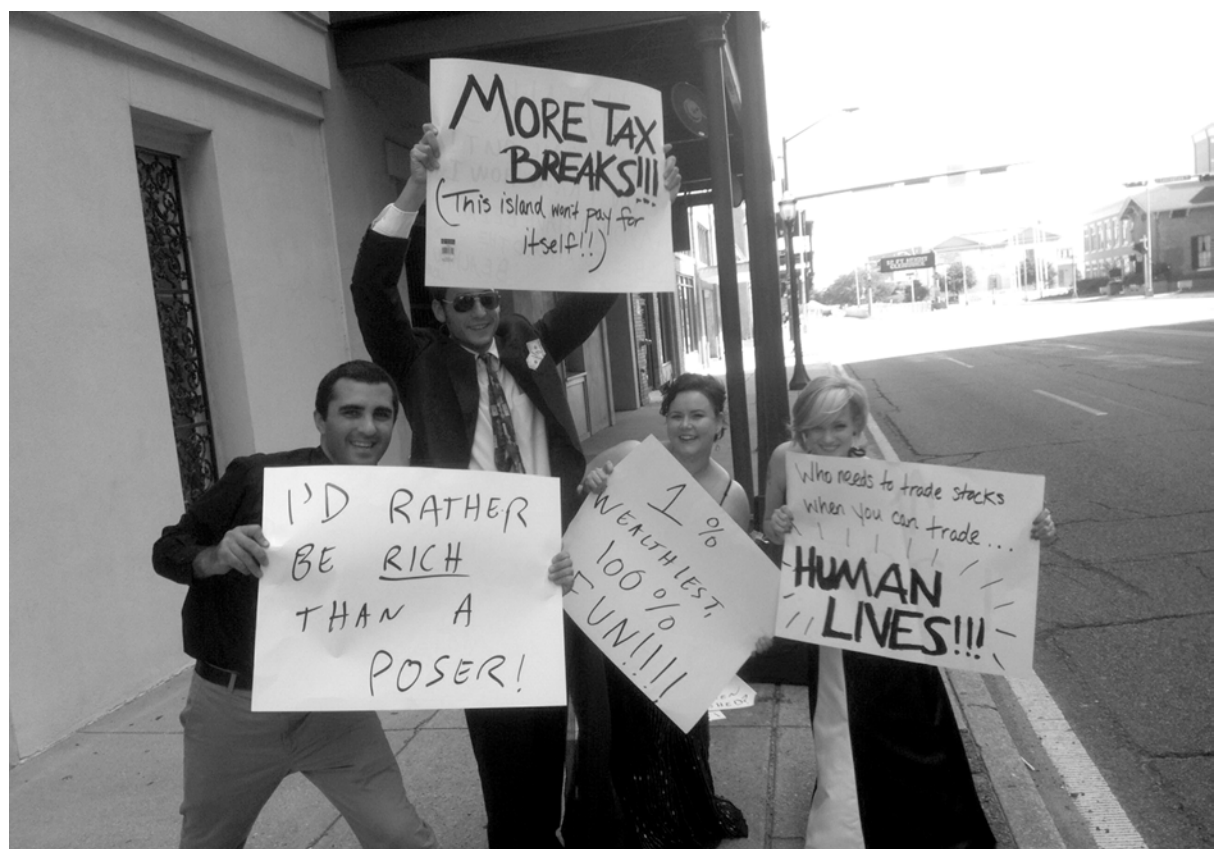 MORE TAX
BREAKS!!!
(This island won't pay for
itself!!)
I'D RATHER
BE RICH
THAN A
POSER!
1%
WEALTHIEST,
100%
FUN!!!!
Who needs to trade stocks
when you can trade...
HUMAN
LIVES!!!